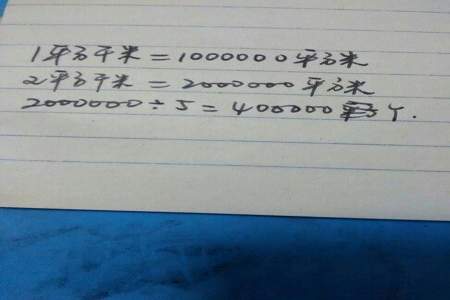 1平方千米=1000000平方米
2平方千米=2000000平方米
2000000÷5=400000个.